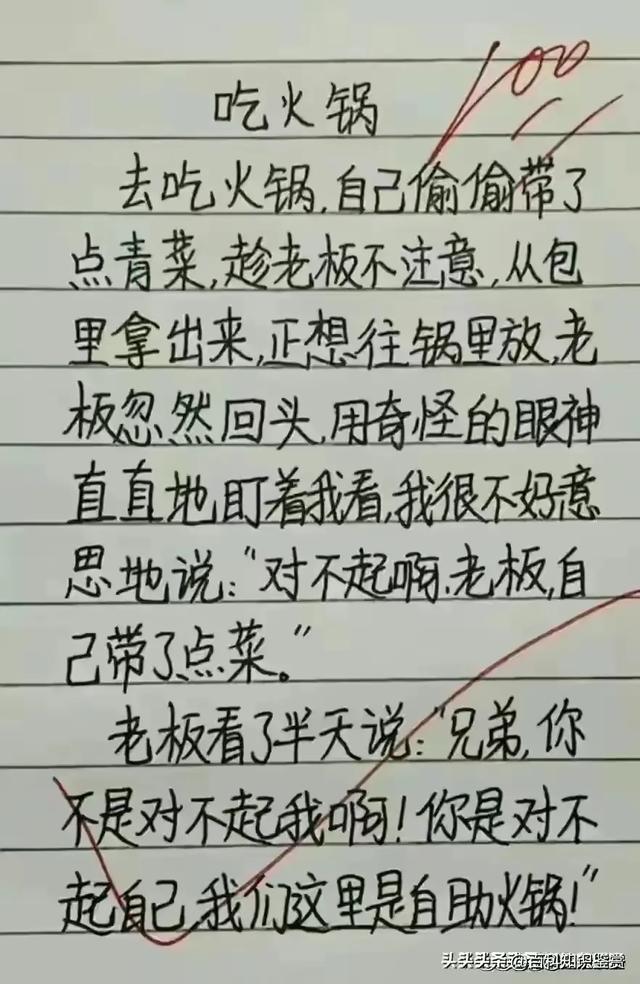 100
吃火锅
去吃火锅,自己偷偷带了
点青菜,趁老板不注意,从包
里拿出来,正想往锅里放,老
板忽然回头,用奇怪的眼神
直直地盯着我看,我很不好意
思地说:“对不起啊.老板,自
己带了点菜。”
老板看了半天说:“兄弟,你
不是对不起我啊!你是对不
起自己,我们这里是自助火锅!”
头条 @百科知识鉴赏